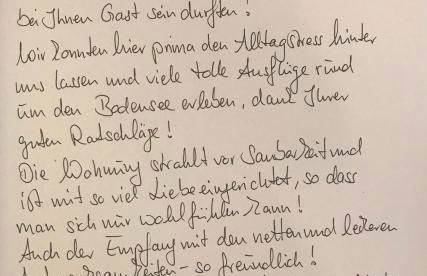 bei Ihnen Gast sein durften!
Wir konnten hier prima den Alltagsstress hinter
uns lassen und viele tolle Ausflüge rund
um den Bodensee erleben, dank Ihrer
guten Ratschläge!
Die Wohnung strahlt vor Sauberkeit und
ist mit so viel Liebe eingerichtet, so dass
man sich nur wohlfühlen kann!
Auch der Empfang mit den netten und leckeren
- so freundlich!